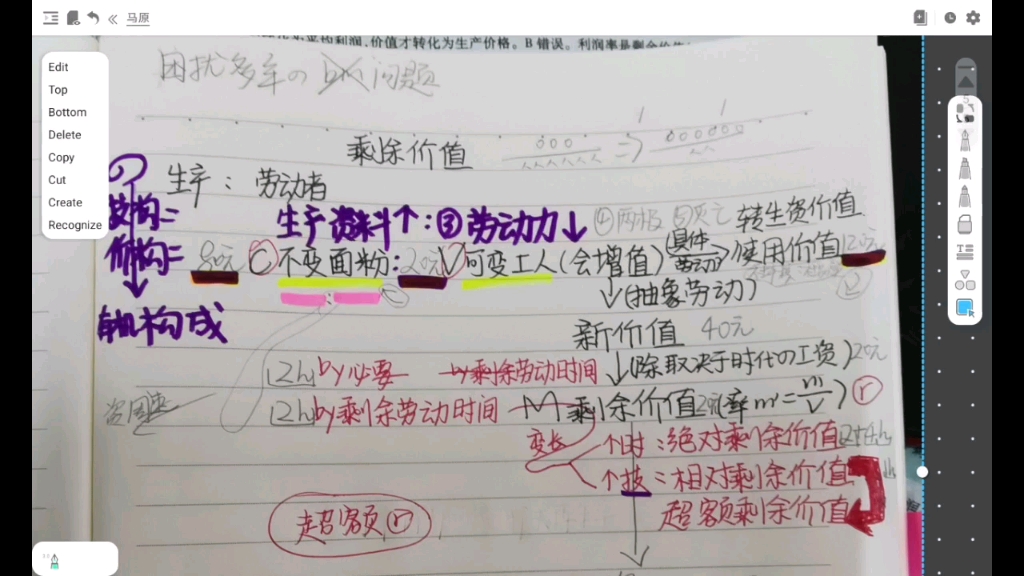 马原
均利润,价值才转化为生产价格。B 错误。利润率是剩余价值
Edit
Top
Bottom
Delete
Copy
Cut
Create
Recognize
困扰多年の 问题
剩余价值
生产: 劳动者
技构=
生产资料个:③劳动力↓
④两极 转生货价值
价构=
80元 C 不变面粉: 20元 V 可变工人(会增值)
(具体劳动)
使用价值 120元
↓(抽象劳动)
有机构成
新价值 40元
12h by必要 by剩余劳动时间
↓(除取决于时代の工资) 20元
12h by剩余劳动时间
M 剩余价值 (率 m'=m/V) r
变长
个时:绝对剩余价值
个技:相对剩余价值
超额剩余价值
超额 r